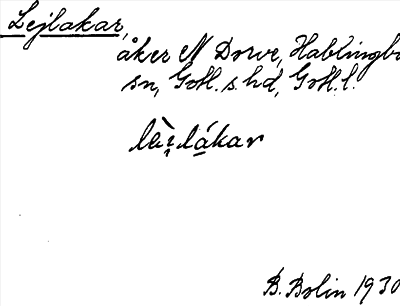 Lejlakar,
åker N Dorve, Hablingbo
sn, Gotl. s. hd, Gotl. l.
lèi̯lákar
B. Bolin 1930